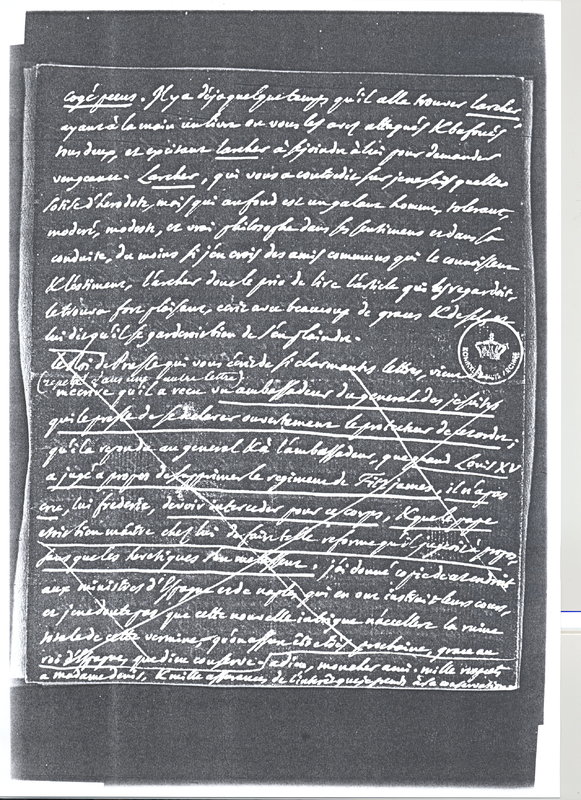 cogé pecus. Il y a déja quelque temps qu'il alla trouver larcher
ayant à la main un livre ou vous les avez attaqués & bafoués
tous deux, et excitant larcher à se joindre à lui pour demander
vengeance. Larcher, qui vous a contredit sur je ne sais quelle
sotise d'herodote, mais qui au fond est un galant homme, tolerant,
moderé, modeste, et vrai philosophe dans ses sentimens et dans sa
conduite, du moins si j'en crois des amis communs qui le connoissent
& l'estiment, larcher donc le pria de lire l'article qui les regardoit,
le trouva fort plaisant, écrit avec beaucoup de graces & de sel, et
lui dit qu'il se garderoit bien de s'en plaindre.
Le Roi de Prusse qui vous écrit de si charmantes lettres, vient
(repeté dans une autre lettre)
m'écrire qu'il a recu un ambassadeur du general des jesuites
qui le presse de se declarer ouvertement le protecteur de cet ordre;
qu'il a repondu au general & à l'ambassadeur, que quand Louis XV
a jugé à propos de supprimer le regiment de Fitzjames, il n'a pas
cru, lui frederic, devoir interceder pour ce corps, & que le pape
est bien maitre chez lui de faire telle réforme qu'il juge à propos,
sans que les heretiques s'en mettent. j'ai donné copie de cet endroit
aux ministres d'Espagne et de naples qui en ont instruit leurs cours,
et je ne doute pas que cette nouvelle intrigue n'accellere la ruine
totale de cette vermine, qu'on assure être très prochaine, grace au
roi d'Espagne, que dieu conserve. adieu, mon cher ami. mille respects
a madame denis, & mille assurances de l'interêt que je prends à sa conservation